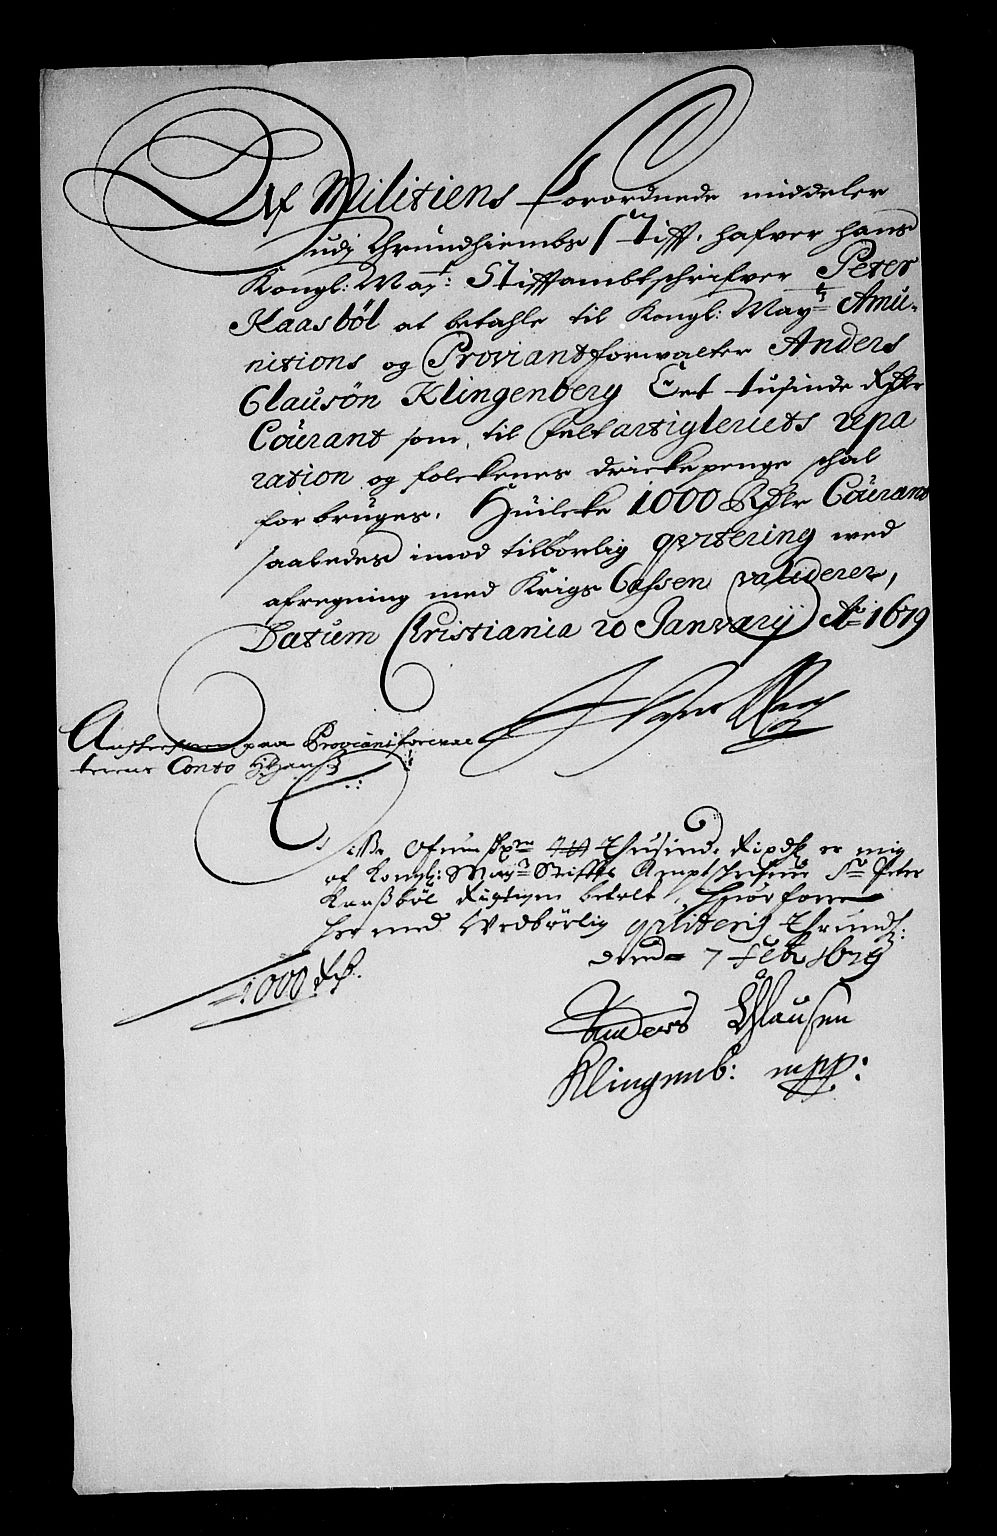 Af Militiens forordnede middeler
udj Thrundhiembs Stifft, hafver hans
Kongl: May:t Stifftambtschrifver Peter
Kaasböl at betahle til Kongl: May:tz Amu-
nitions og Proviantforwalter Anders
Clausön Klingenberg Eet tusinde Rdlr
Courant som til feltartigleriets repa
ration og folckenes drickepenge schal
forbruges, Huilcke 1000 Rdlr Courant
saaledes imod tilbörlig qvitering wed
afregning med Krigs Cassen validerer,
Datum Christiania 20 Janvarij Ao 1679
paa Proviantforwal
terens Conto
Disse Ofvenschr:ne Thusind Rixdlr er mig
af Kongl: May:tz Stiffts Amptschrifver Sr Peter
Kaasböl Rigtigen betalt, Huorforre
her med Vedbörlig qvitteris Thrundh:
dend 7 Feb 1679
1000 Rdr.
Anders Clausen
Klingenb: mpp: